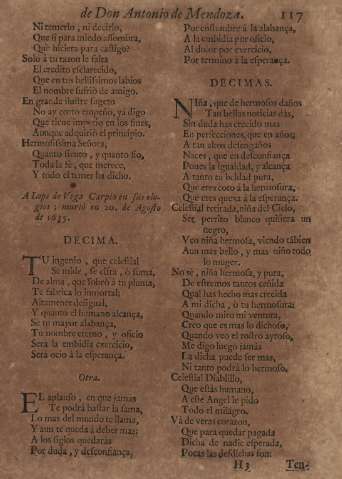 de Don Antonio de Mendoza. 117
Ni temerlo, ni decirlo,
Que si para miedo assombra,
Què hiciera para castigo?
Solo à tu razon le falta
El credito esclarecido,
Que en tus bellissimos labios
El nombre sufriò de amigo.
En grande ilustre sugeto
No ay corto empeño, yà digo
Que tiene imperio en los fines,
Aunque adquiriò el principio.
Hermosissima Señora,
Quanto siento, y quanto fio,
Toda la fè, que merece,
Y todo el temer ha dicho.
A Lope de Vega Carpio en sus elo-
gios; murió en 20. de Agosto
de 1635.
DECIMA.
TU ingenio, que celestial
Se mide, se essa, ò suma,
De alma, que sobrò à tu pluma,
Te fabrica lo inmortal;
Altamente desigual,
Y quanto el humano alcança,
Se tu mayor alabança,
Tu nombre eterno, y oficio
Serà la embidia exercicio,
Serà ocio à la esperança.
Otra.
EL aplauso, en que jamàs
Te podrà bastar la fama,
Lo mas del mundo te llama,
Y aun te queda à deber mas:
A los siglos quedaràs
Por duda, y desconfiança,
Por costumbre à la alabança,
A la embidia por oficio,
Al dolor por exercicio,
Por termino à la esperança.
DECIMAS.
NIña, que de hermosos daños
Tan bellas noticias dàs,
Sin duda has crecido mas
En perfecciones, que en años;
A tan altos desengaños
Naces, que en desconfiança
Pones la igualdad, y alcança
A tanto tu beldad pura,
Que eres coto à la hermosura,
Que eres quexa à la esperança.
Celestial retirada, niña del Cielo,
Ser perrito blanco quisiera un
negro,
Veo niña hermosa, viendo tábien
Aun mas bello, y mas niño todo
lo muger.
No sè, niña hermosa, y pura,
De estremos tantos ceñida
Qual has hecho mas crecida
A mi dicha, ò tu hermosura:
Quando miro mi ventura,
Creo que es mas lo dichoso,
Quando veo el rostro ayroso,
Me digo luego jamàs
La dicha puede ser mas,
Ni tanto podrà lo hermoso.
Celestial Diablillo,
Que estàs humano,
A este Angel le pido
Todo el milagro.
Và de veras corazon,
Que para quedar pagada
Dicha de nadie esperada,
Pocas las desdichas son:
H3 Ten-